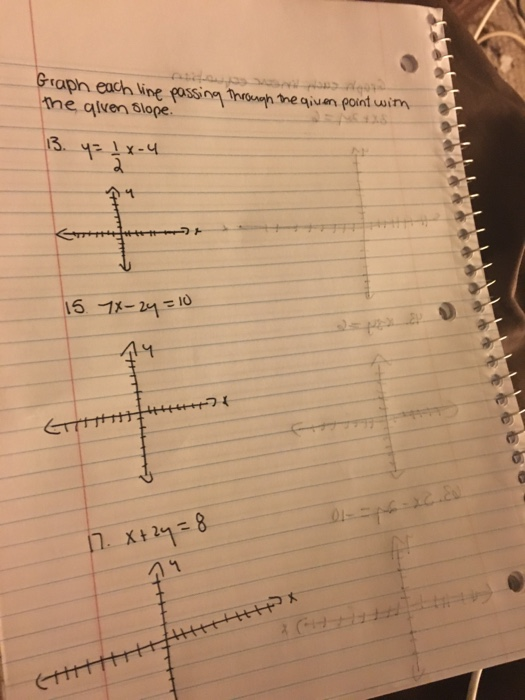 Graph each line passing through the given point with
the given slope.
13. y = 1/2 x - 4
y
x
15. 7x - 2y = 10
y
x
17. x + 2y = 8
y
x